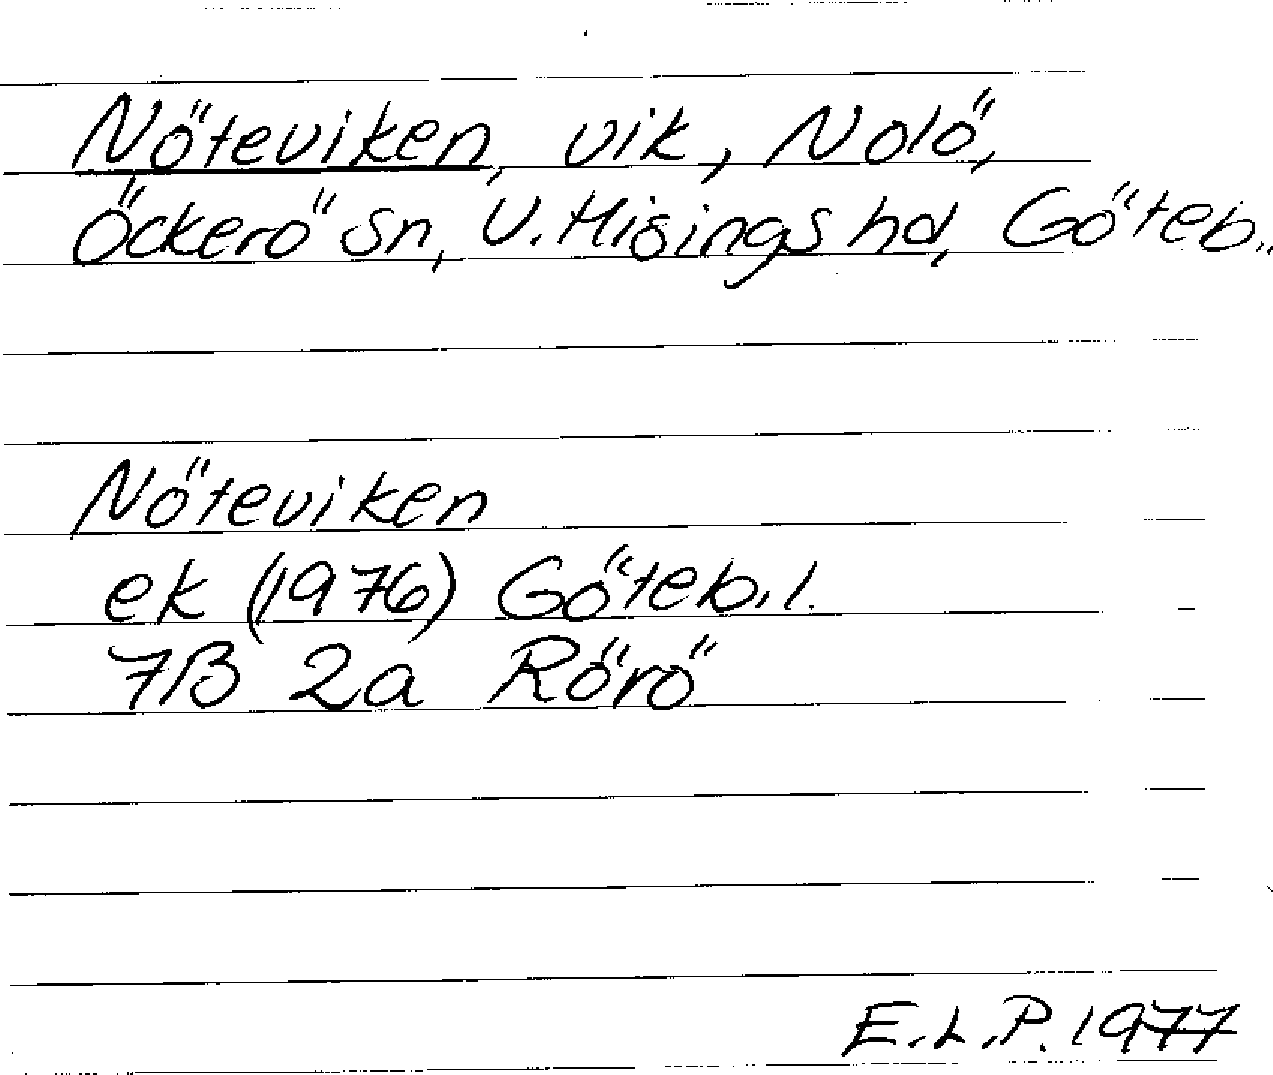 Nöteviken, vik, Nolö,
Öckerö sn, V. Hisings hd, Göteb..
Nöteviken
ek (1976) Göteb. l.
7B 2a Rörö
E.L.P. 1977